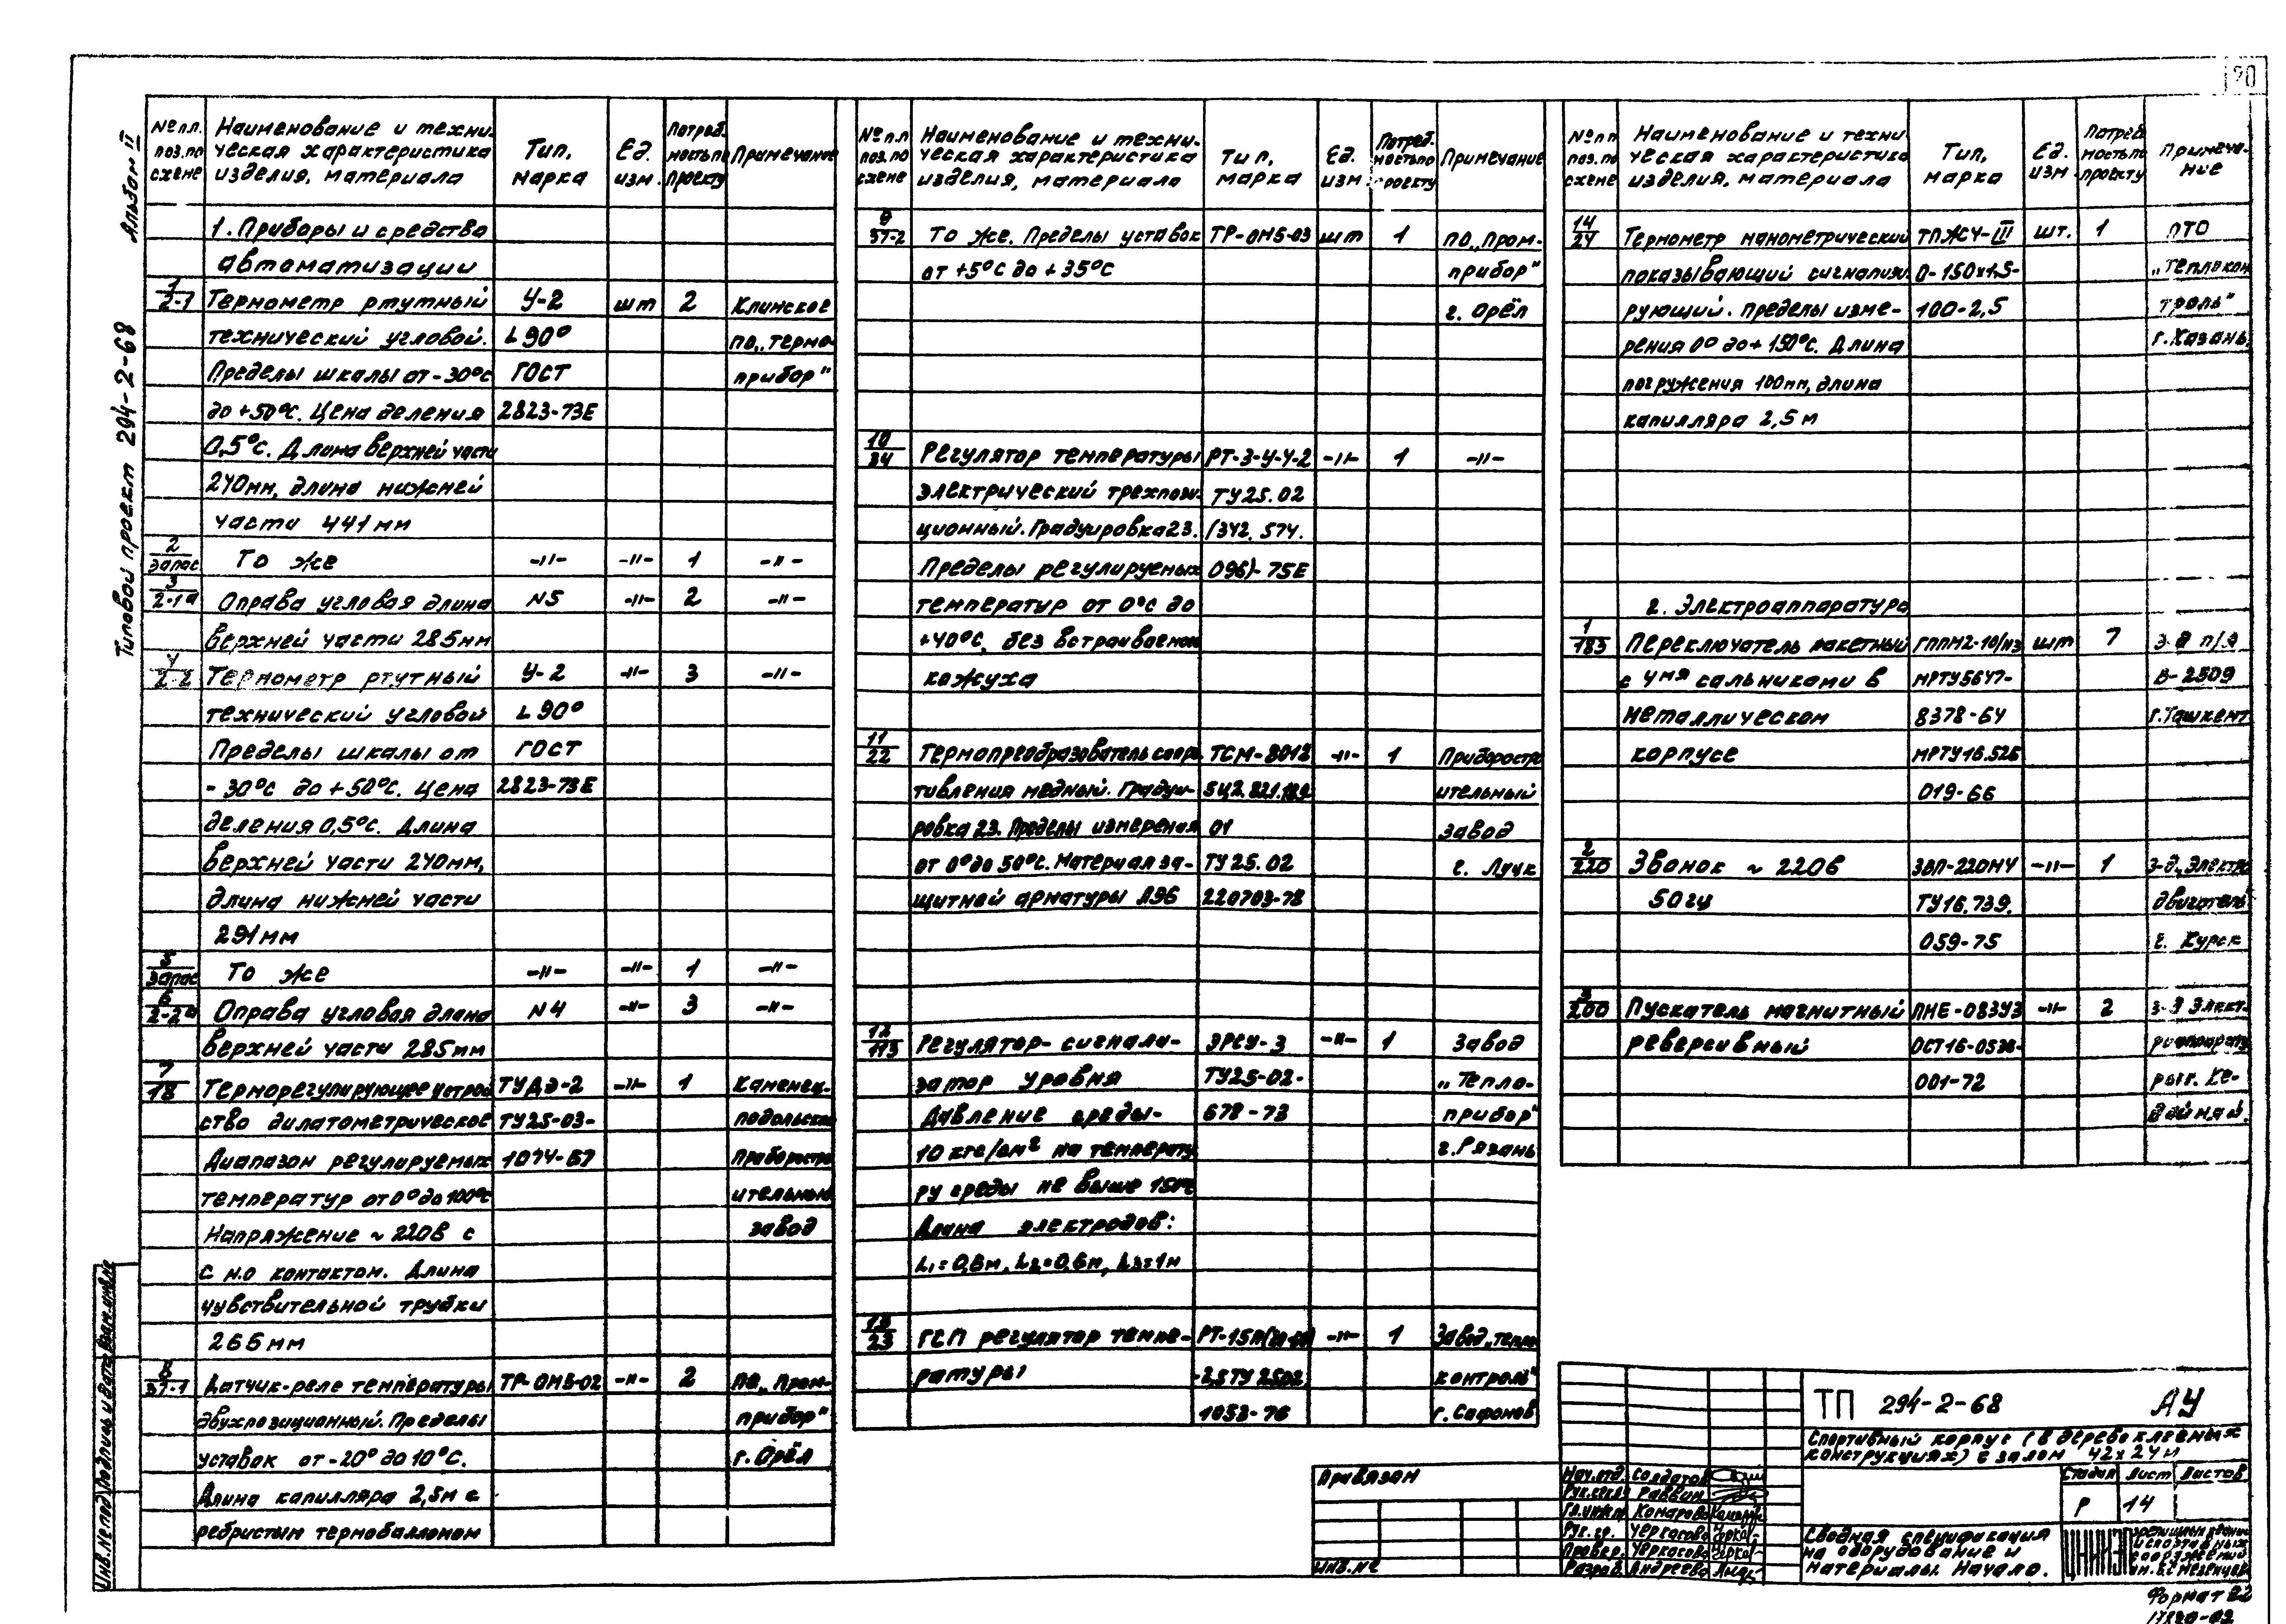 Альбом II
Типовой проект 294-2-68
№ п.п. поз. по схеме
Наименование и техническая характеристика изделия, материала
Тип, марка
Ед. изм.
Потребность по проекту
Примечание
1. Приборы и средства
автоматизации
1/2-1 Термометр ртутный У-2 шт 2 Клинское
технический угловой. L 90° по „Термо-
Пределы шкалы от -30°С ГОСТ прибор"
до +50°С. Цена деления 2823-73Е
0,5°С. Длина верхней части
240мм, длина нижней
части 441мм
2/запас То же -"- -"- 1 -"-
3/2-1а Оправа угловая длина N5 -"- 2 -"-
верхней части 285мм
4/2-2 Термометр ртутный У-2 -"- 3 -"-
технический угловой L 90°
Пределы шкалы от ГОСТ
-30°С до +50°С. Цена 2823-73Е
деления 0,5°С. Длина
верхней части 240мм,
длина нижней части
291мм
5/запас То же -"- -"- 1 -"-
6/2-2а Оправа угловая длина N4 -"- 3 -"-
верхней части 285мм
7/18 Терморегулирующее устрой ТУДЭ-2 -"- 1 Каменец-
ство дилатометрическое ТУ25-03- подольский
Диапазон регулируемых 1074-67 приборостро
температур от 0° до 100°С ительный
Напряжение ~220В с завод
с н.о контактом. Длина
чувствительной трубки
266мм
8/37-1 Датчик-реле температуры ТР-ОМ5-02 -"- 2 ПО „Пром-
двухпозиционный. Пределы прибор"
уставок от -20° до 10°С. г. Орёл
Длина капилляра 2,5м с
ребристым термобаллоном
№ п.п поз. по схеме
Наименование и техническая характеристика изделия, материала
Тип, марка
Ед. изм
Потребность по проекту
Примечание
9/37-2 То же. Пределы уставок ТР-ОМ5-03 шт 1 ПО „Пром-
от +5°С до +35°С прибор"
г. Орёл
10/34 Регулятор температуры РТ-3-У-У-2 -"- 1 -"-
электрический трехпози- ТУ25.02
ционный. Градуировка 23. (342. 574.
Пределы регулируемых 096)-75Е
температур от 0°С до
+40°С, без встраиваемого
кожуха
11/22 Термопреобразователь сопро ТСМ-8012 -"- 1 Приборостро
тивления медный. Градуи- 5Ц2.821.189
ительный
ровка 23. Пределы измерения 01 завод
от 0° до 50°С. Материал за- ТУ25.02 г. Луцк
щитной арматуры Л96 220703-78
12/193 Регулятор-сигнали- ЭРСУ-3 -"- 1 Завод
затор уровня ТУ25-02- „Тепло-
Давление среды- 678-73 прибор"
10 кгс/см² на температу г. Рязань
ру среды не выше 150°С
Длина электродов:
L₁=0,6м, L₂=0,6м, L₃=1м
13/23 ГСП регулятор темпе- -"- 1 Завод „тепло
ратуры -2,5ТУ 2502 контроль"
1053-76 г. Сафоново
№ п.п поз. по схеме
Наименование и техническая характеристика изделия, материала
Тип, марка
Ед. изм
Потребность по проекту
Примечание
14/24 Термометр манометрический ТПЖ4-III шт. 1 ПТО
показывающий сигнализи 0-150х1,5- „Теплокон
рующий. Пределы изме- 100-2,5 троль"
рения 0° до +150°С. Длина г. Казань
погружения 100мм, длина
капилляра 2,5м
2. Электроаппаратура
1/185 Переключатель пакетный ГППМ2-10/н3 шт 7 з-д п/я
с 4мя сальниками в МРТУ5647- В-2509
металлическом 8378-64 г. Ташкент
корпусе МРТУ16.526
019-66
2/220 Звонок ~220В ЗВП-220М4 -"- 1 з-д „Электро
50гц ТУ16.739. двигатель"
059-75 г. Курск
3/200 Пускатель магнитный ПМЕ-083У3 -"- 2 з-д Элект-
реверсивный ОСТ16-0536- роаппарату
001-72 ры
Привязан
Инв. №
ТП 294-2-68 АУ
Спортивный корпус (в деревоклееных
конструкциях) с залом 42х24м
Стадия Лист Листов
Р 14
Нач. отд. Солдатов
Рук. сект. Раввин
Гл. инж. пр. Комарова
Рук. гр. Черкасова
Провер. Черкасова
Разраб. Андреева
Сводная спецификация
на оборудование и
материалы. Начало.
ЦНИИЭП
зрелищных зданий
и спортивных
сооружений
им. Б.С. Мезенцева
Формат 22
17820-02
Инв. № подл. Подпись и дата Взам. инв. №